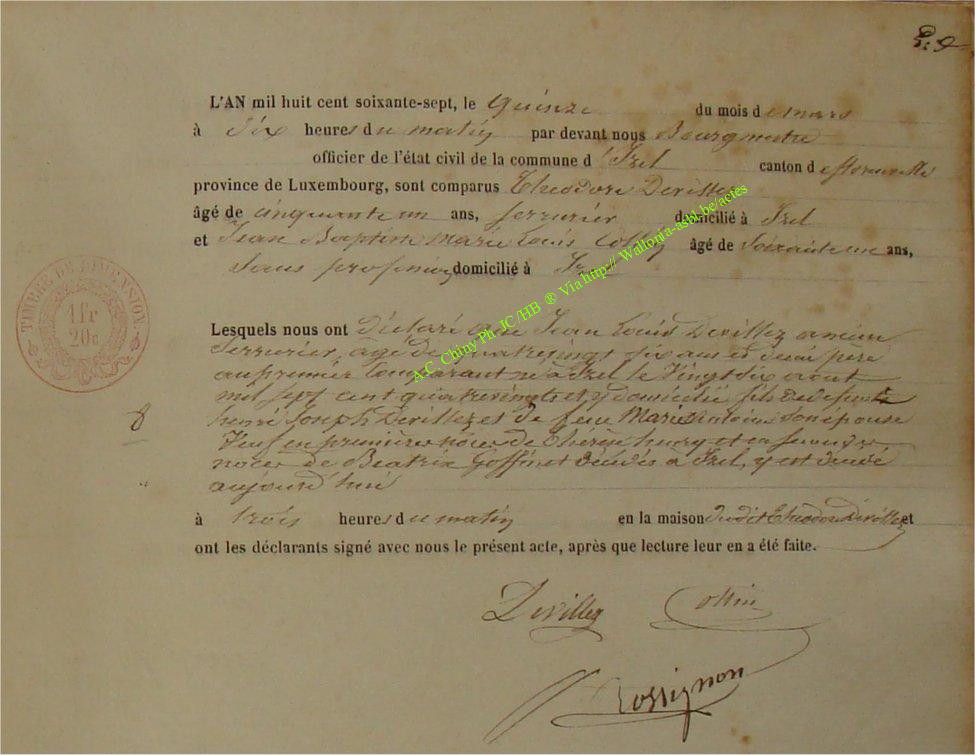 L'AN mil huit cent soixante-sept, le quinze du mois de mars
à dix heures du matin par devant nous Bourgmestre
officier de l'état civil de la commune d'Izel canton de florenville
province de Luxembourg, sont comparus Théodore Devillez
âgé de cinquante un ans, serrurier domicilié à Izel
et Jean Baptiste Marie Louis Collin âgé de soixante un ans,
sans profession domicilié à Izel
Lesquels nous ont déclaré que Jean Louis Devillez ancien
serrurier, âgé de quatrevingt six ans et demi père
au premier comparant né à Izel le vingt six août
mil sept cent quatrevingt et y domicilié fils de défunt
henri Joseph Devillez et de feue Marie antoine son épouse
Veuf en premières nôces de Thérèse et en secondes
noces de Beatrix Goffinet décédés à Izel, y est décédé
aujourd'hui
à trois heures du matin en la maison dudit Théodore Devillez et
ont les déclarants signé avec nous le présent acte, après que lecture leur en a été faite.
Devillez Collin
Rossignon
TIMBRE DE DIMENSION.
1 fr
20 c
8
A.C. Chiny Ph. JC/HB ® Via http:// Wallonia-asbl.be/actes